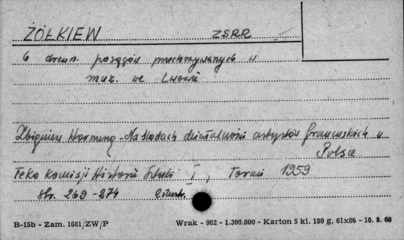 ŻÓŁKIEW ZSRR
6 drewn. posągów przechowywanych w
muz. we Lwowie
Zbigniew Hornung - Na śladach działalności artystów francuskich w
Polsce
Teka Komisji Historii Sztuki I, Toruń 1959
str. 260-274
B-15b - Zam. 1681/ZW/P Wrak - 962 - 1.300.000 - Karton 5 kl. 180 g, 61x86 - 10. 9. 60